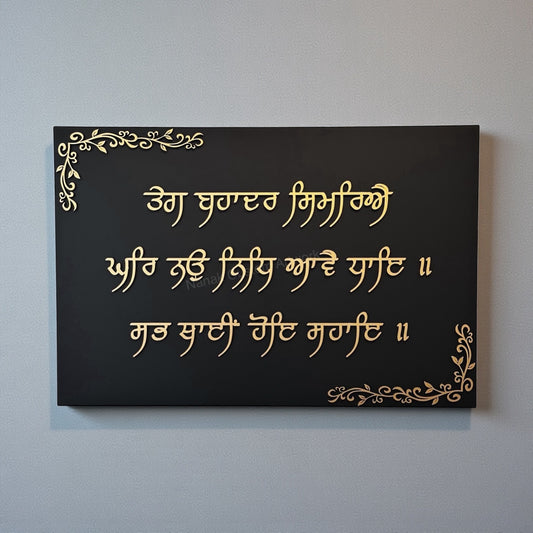 ਤੇਗ ਬਹਾਦਰ ਸਿਮਰਿਐ
ਘਰਿ ਨਉ ਨਿਧਿ ਆਵੈ ਧਾਇ ॥
ਸਭ ਥਾਈਂ ਹੋਇ ਸਹਾਇ ॥